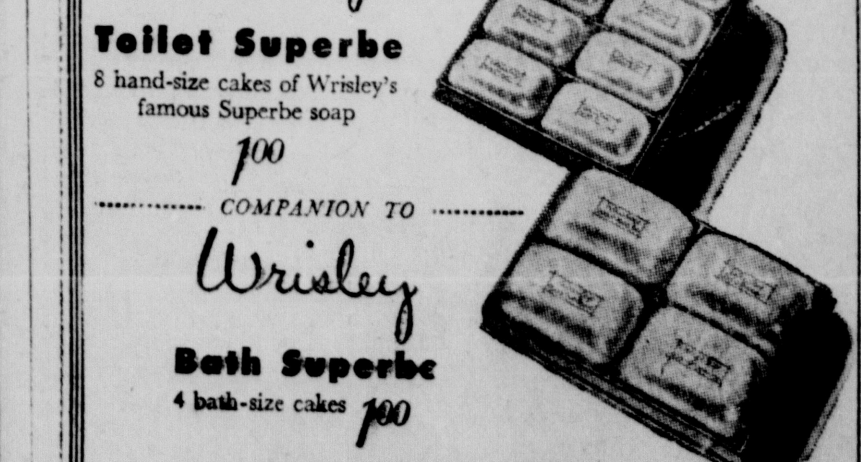 Toilet Superbe
8 hand-size cakes of Wrisley's
famous Superbe soap
1.00
COMPANION TO
Wrisley
Bath Superbe
4 bath-size cakes 1.00